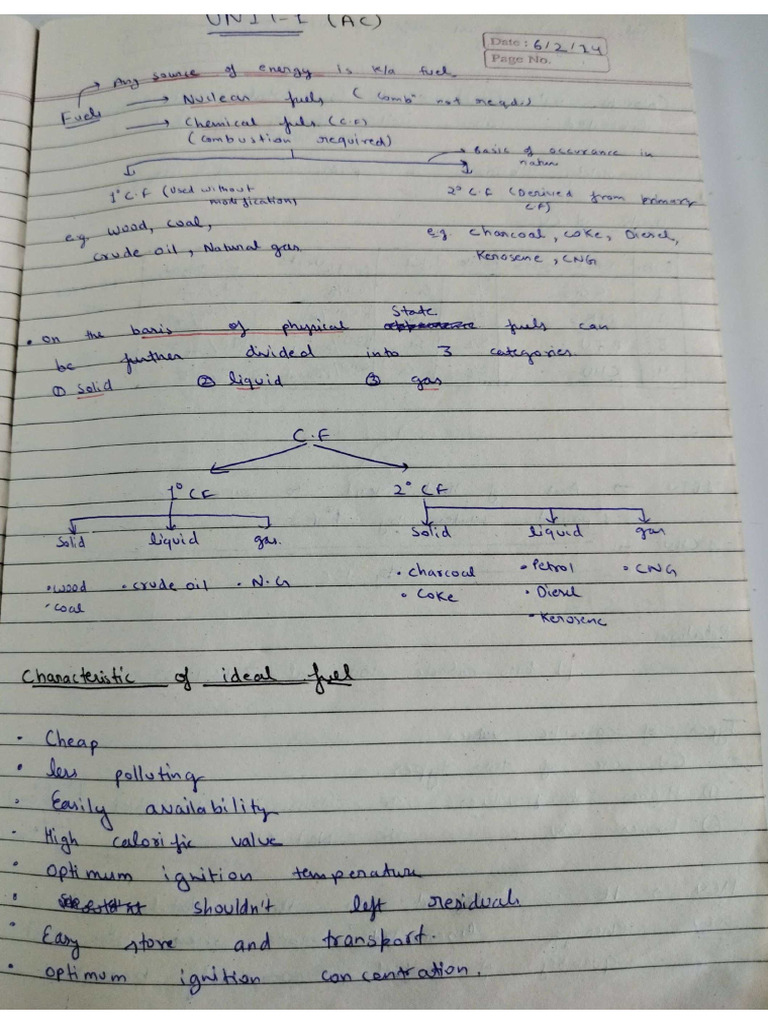 UNIT-1 (AC)
Date: 6/2/24
Page No.
→ Any source of energy is k/a fuel.
Fuels → Nuclear fuels (Combⁿ not reqd.)
→ Chemical fuels (C.F)
(Combustion required)
→ Basis of occurance in nature
1° C.F (Used without modification)
2° C.F (Derived from primary CF)
e.g. wood, coal,
crude oil, Natural gas.
e.g. Charcoal, coke, Diesel,
Kerosene, CNG
• On the basis of physical state fuels can
be further divided into 3 categories.
① Solid ② liquid ③ gas
C.F
1° CF 2° CF
solid liquid gas. solid liquid gas
• wood • crude oil • N.G • Charcoal • Petrol • CNG
• coal • Coke • Diesel
• Kerosene
Characteristic of ideal fuel
• Cheap
• less polluting
• Easily availability
• High calorific value
• optimum ignition temperature
• shouldn't left residuals
• Easy store and transport.
• optimum ignition concentration.